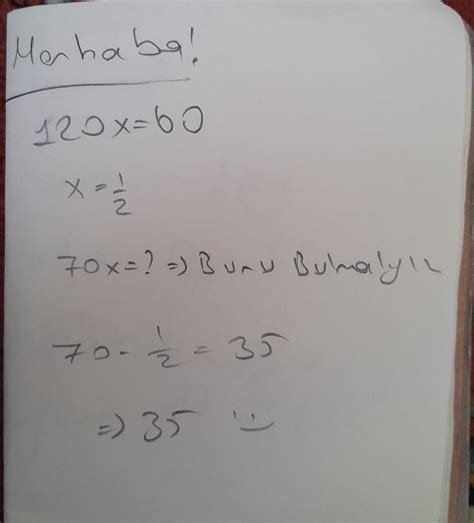 Merhaba!
120x=60
x=1/2
70x=? => Bunu Bulmalıyız
70·1/2=35
=> 35 :)